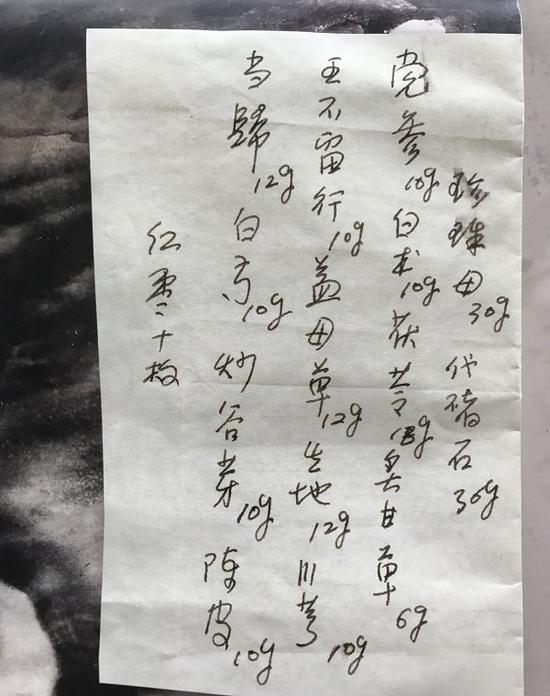 珍珠母30g 代赭石30g
党参10g 白术10g 茯苓 炙甘草6g
王不留行10g 益母草12g 生地12g 川芎10g
当歸12g 白芍10g 炒谷芽10g 陈皮10g
红枣十枚